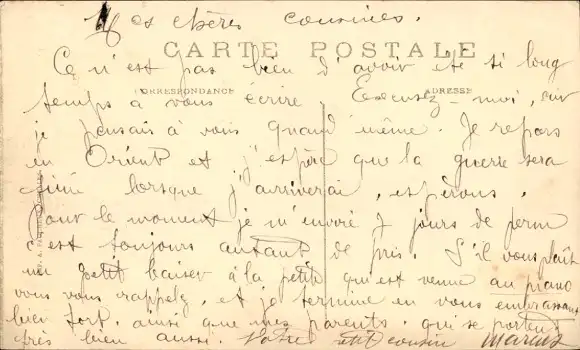 Mes chères cousines.
CARTE POSTALE
Ce n'est pas bien d'avoir eté si long
CORRESPONDANCE ADRESSE
temps a vous écrire. Excusez-moi, car
je pensais à vous quand même. Je repars
en Orient et j'espère que la guerre sera
finie lorsque j'arriverai, espérons.
Pour le moment je m'envoie 7 jours de perm
c'est toujours autant de pris. S'il vous plait
un petit baiser à la petite qui est venue au piano
vous vous rappelez, et je termine en vous embrassant
bien fort, ainsi que mes parents, qui se portent
très bien aussi. Votre petit cousin Marius